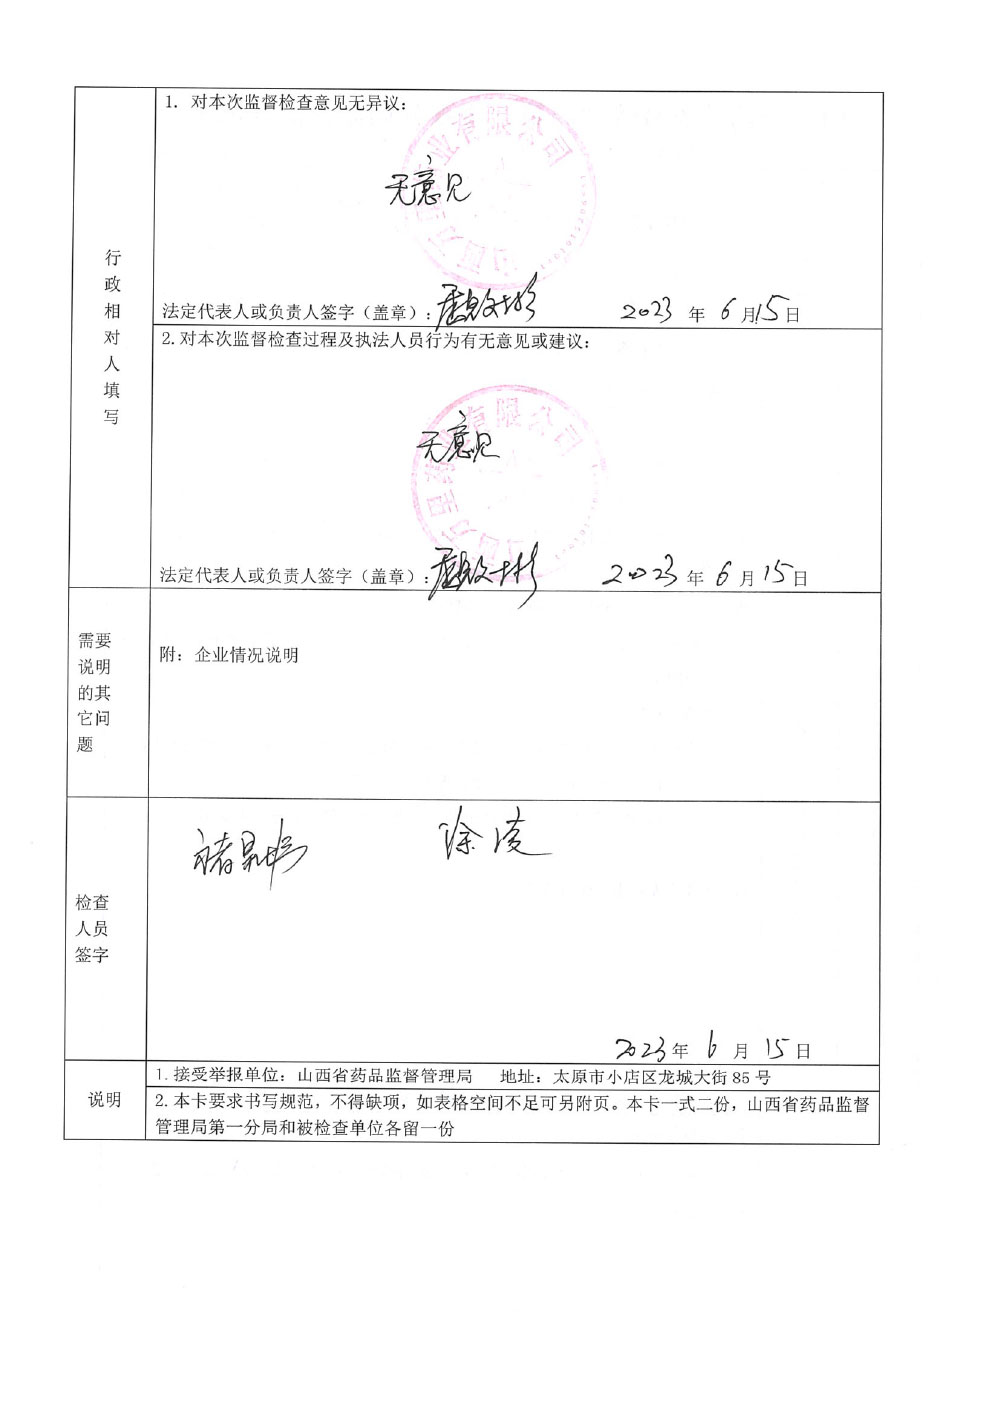 1. 对本次监督检查意见无异议：
无意见
法定代表人或负责人签字（盖章）： 2023 年 6 月 15 日
行政相对人填写
2.对本次监督检查过程及执法人员行为有无意见或建议：
无意见
法定代表人或负责人签字（盖章）： 2023 年 6 月 15 日
有限公司
有限公司
需要
说明
的其
它问
题
附：企业情况说明
检查
人员
签字
徐凌
2023 年 6 月 15 日
说明
1.接受举报单位：山西省药品监督管理局 地址：太原市小店区龙城大街 85 号
2.本卡要求书写规范，不得缺项，如表格空间不足可另附页。本卡一式二份，山西省药品监督
管理局第一分局和被检查单位各留一份